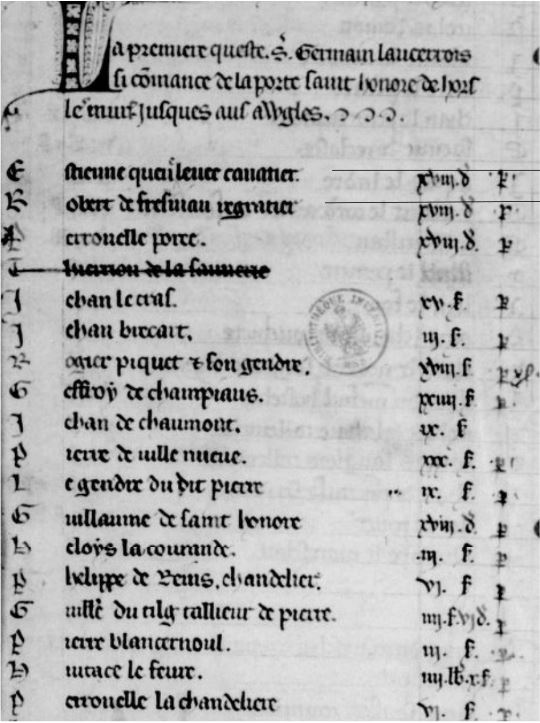 La premiere queste. S. Germain laucerrois
si comance de la porte saint honore de hors
les murs jusques aus avugles.
Estienne queu leuer cauatier xviij. d p
Robert de fresnau regratier xviij. d. p
Perronelle poree. xviij. d. p
Thierrion de la saunerie
Jehan le cras. xv. s. p
Jehan biccart. iij. s. p
Rogier piquet ⁊ son gendre. xviij. s p
Geffroy de champiaus. xciiij. s p.
Jehan de chaumont. ix. s. p
Pierre de uille nueue. xxx. s. p
Le gendre du dit pierre ix. s. p
Guillaume de saint honore xviij. d. p
Heloys la couurande. iij. s. p
Phelippe de Reins, chandelier. vj. s p
Guille du tilg tallieur de pierre. iiij. s. vj d. p
Pierre blancernoul. iij. s. p
Huitace le feure. iiij. lb. x. s. p
Perronelle la chandeliere vj. s. p